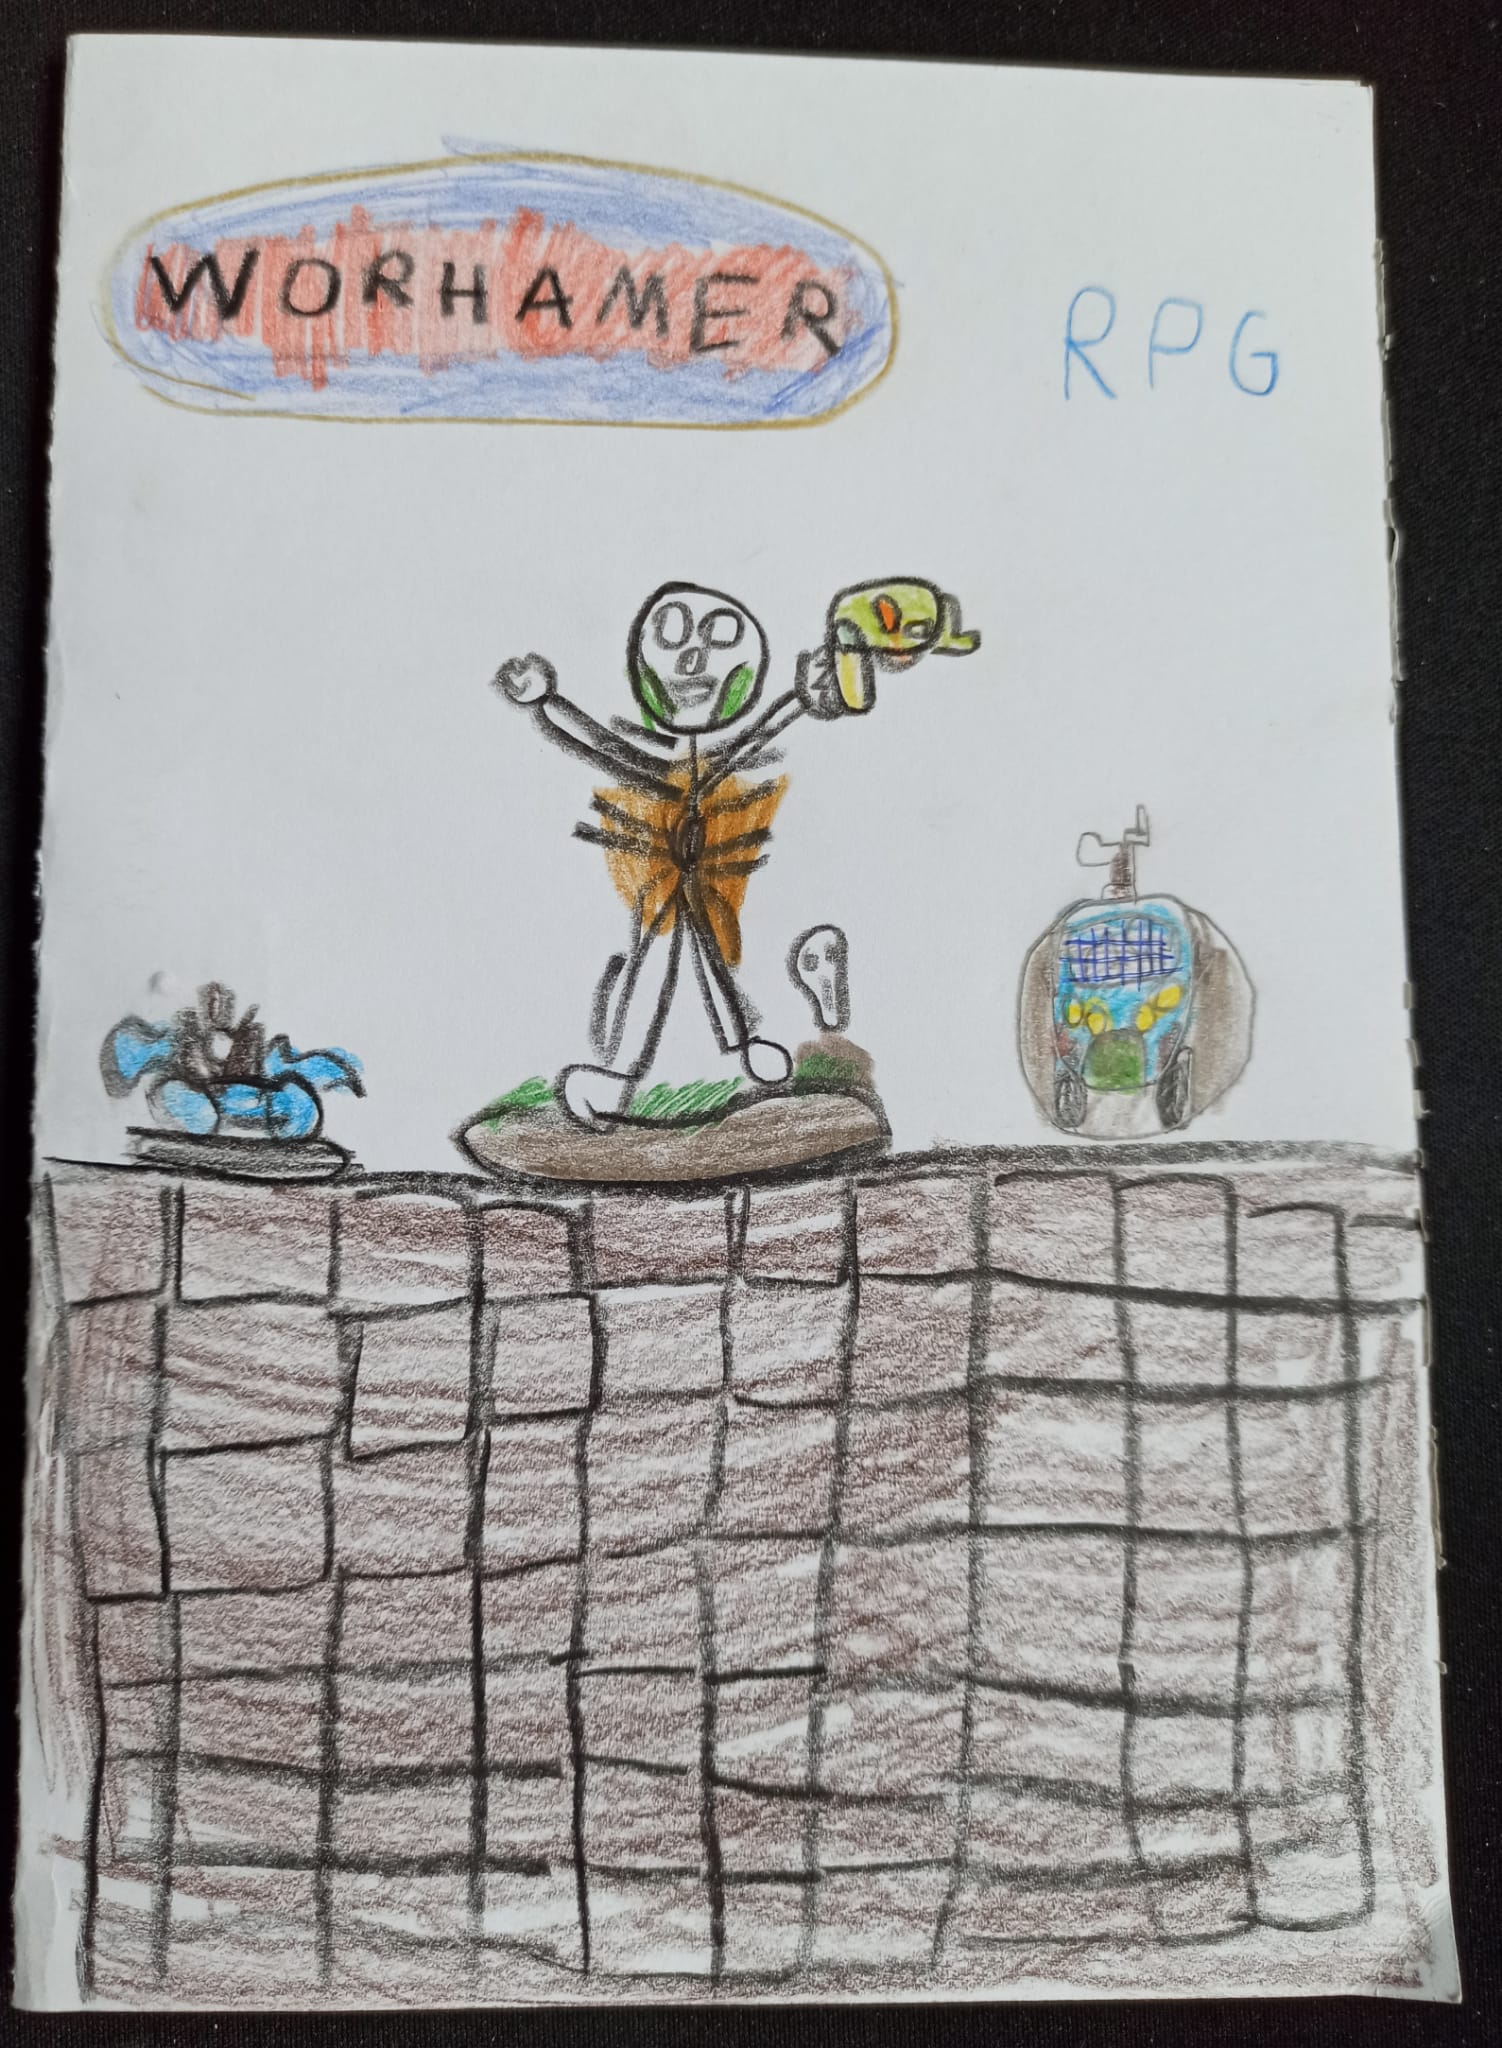 WORHAMER
RPG